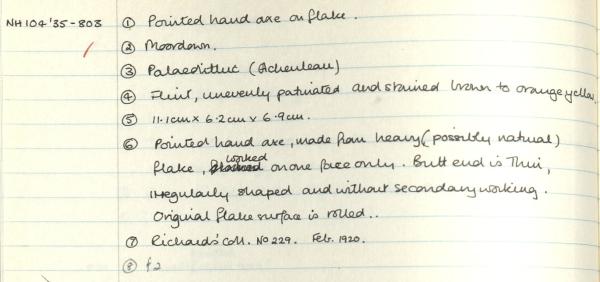 NH104'35-803 ① Pointed hand axe on flake.
② Moordown.
③ Palaeolithic (Acheulean)
④ Flint, unevenly patinated and stained brown to orange yellow.
⑤ 11.1cm x 6.2cm x 6.9cm.
⑥ Pointed hand axe, made from heavy (possibly natural)
flake, worked on one face only. Butt end is thin,
irregularly shaped and without secondary working.
Original flake surface is rolled..
⑦ Richards' Coll. No 229. Feb. 1920.
⑧ f2